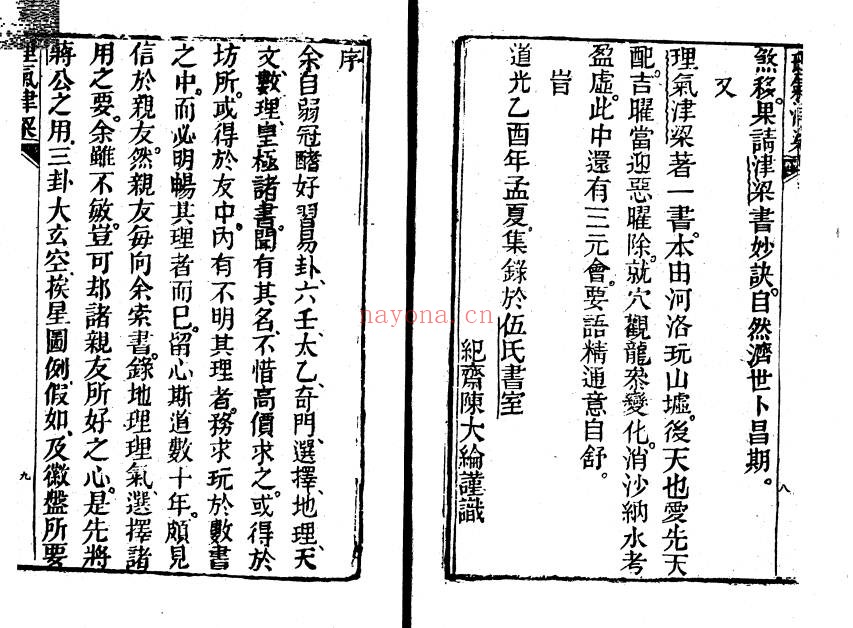 煞移。果請津梁書妙訣。自然濟世卜昌期。
又
理氣津梁著一書。本由河洛玩山墟。後天也愛先天
配。吉曜當迎惡曜除。就穴觀龍叅變化。消沙納水考
盈虛。此中還有三元會。要語精通意自舒。
旹
道光乙酉年孟夏集錄於伍氏書室
紀齋陳大綸謹識
八
序
余自弱冠醝好習易卦、六壬、太乙、奇門、選擇、地理、天
文、數理、皇極諸書。聞有其名、不惜高價求之。或得於
坊所。或得於友中。內有不明其理者。務求玩於數書
之中。而必明暢其理者而巳。留心斯道數十年。頗見
信於親友。然親友毎向余索書。錄地理理氣、選擇諸
用之要。余雖不敏。豈可却諸親友所好之心。是先將
蔣公之用、三卦大玄空、挨星圖例、假如、及徽盤所要
理氣津梁
九
nayona.cn